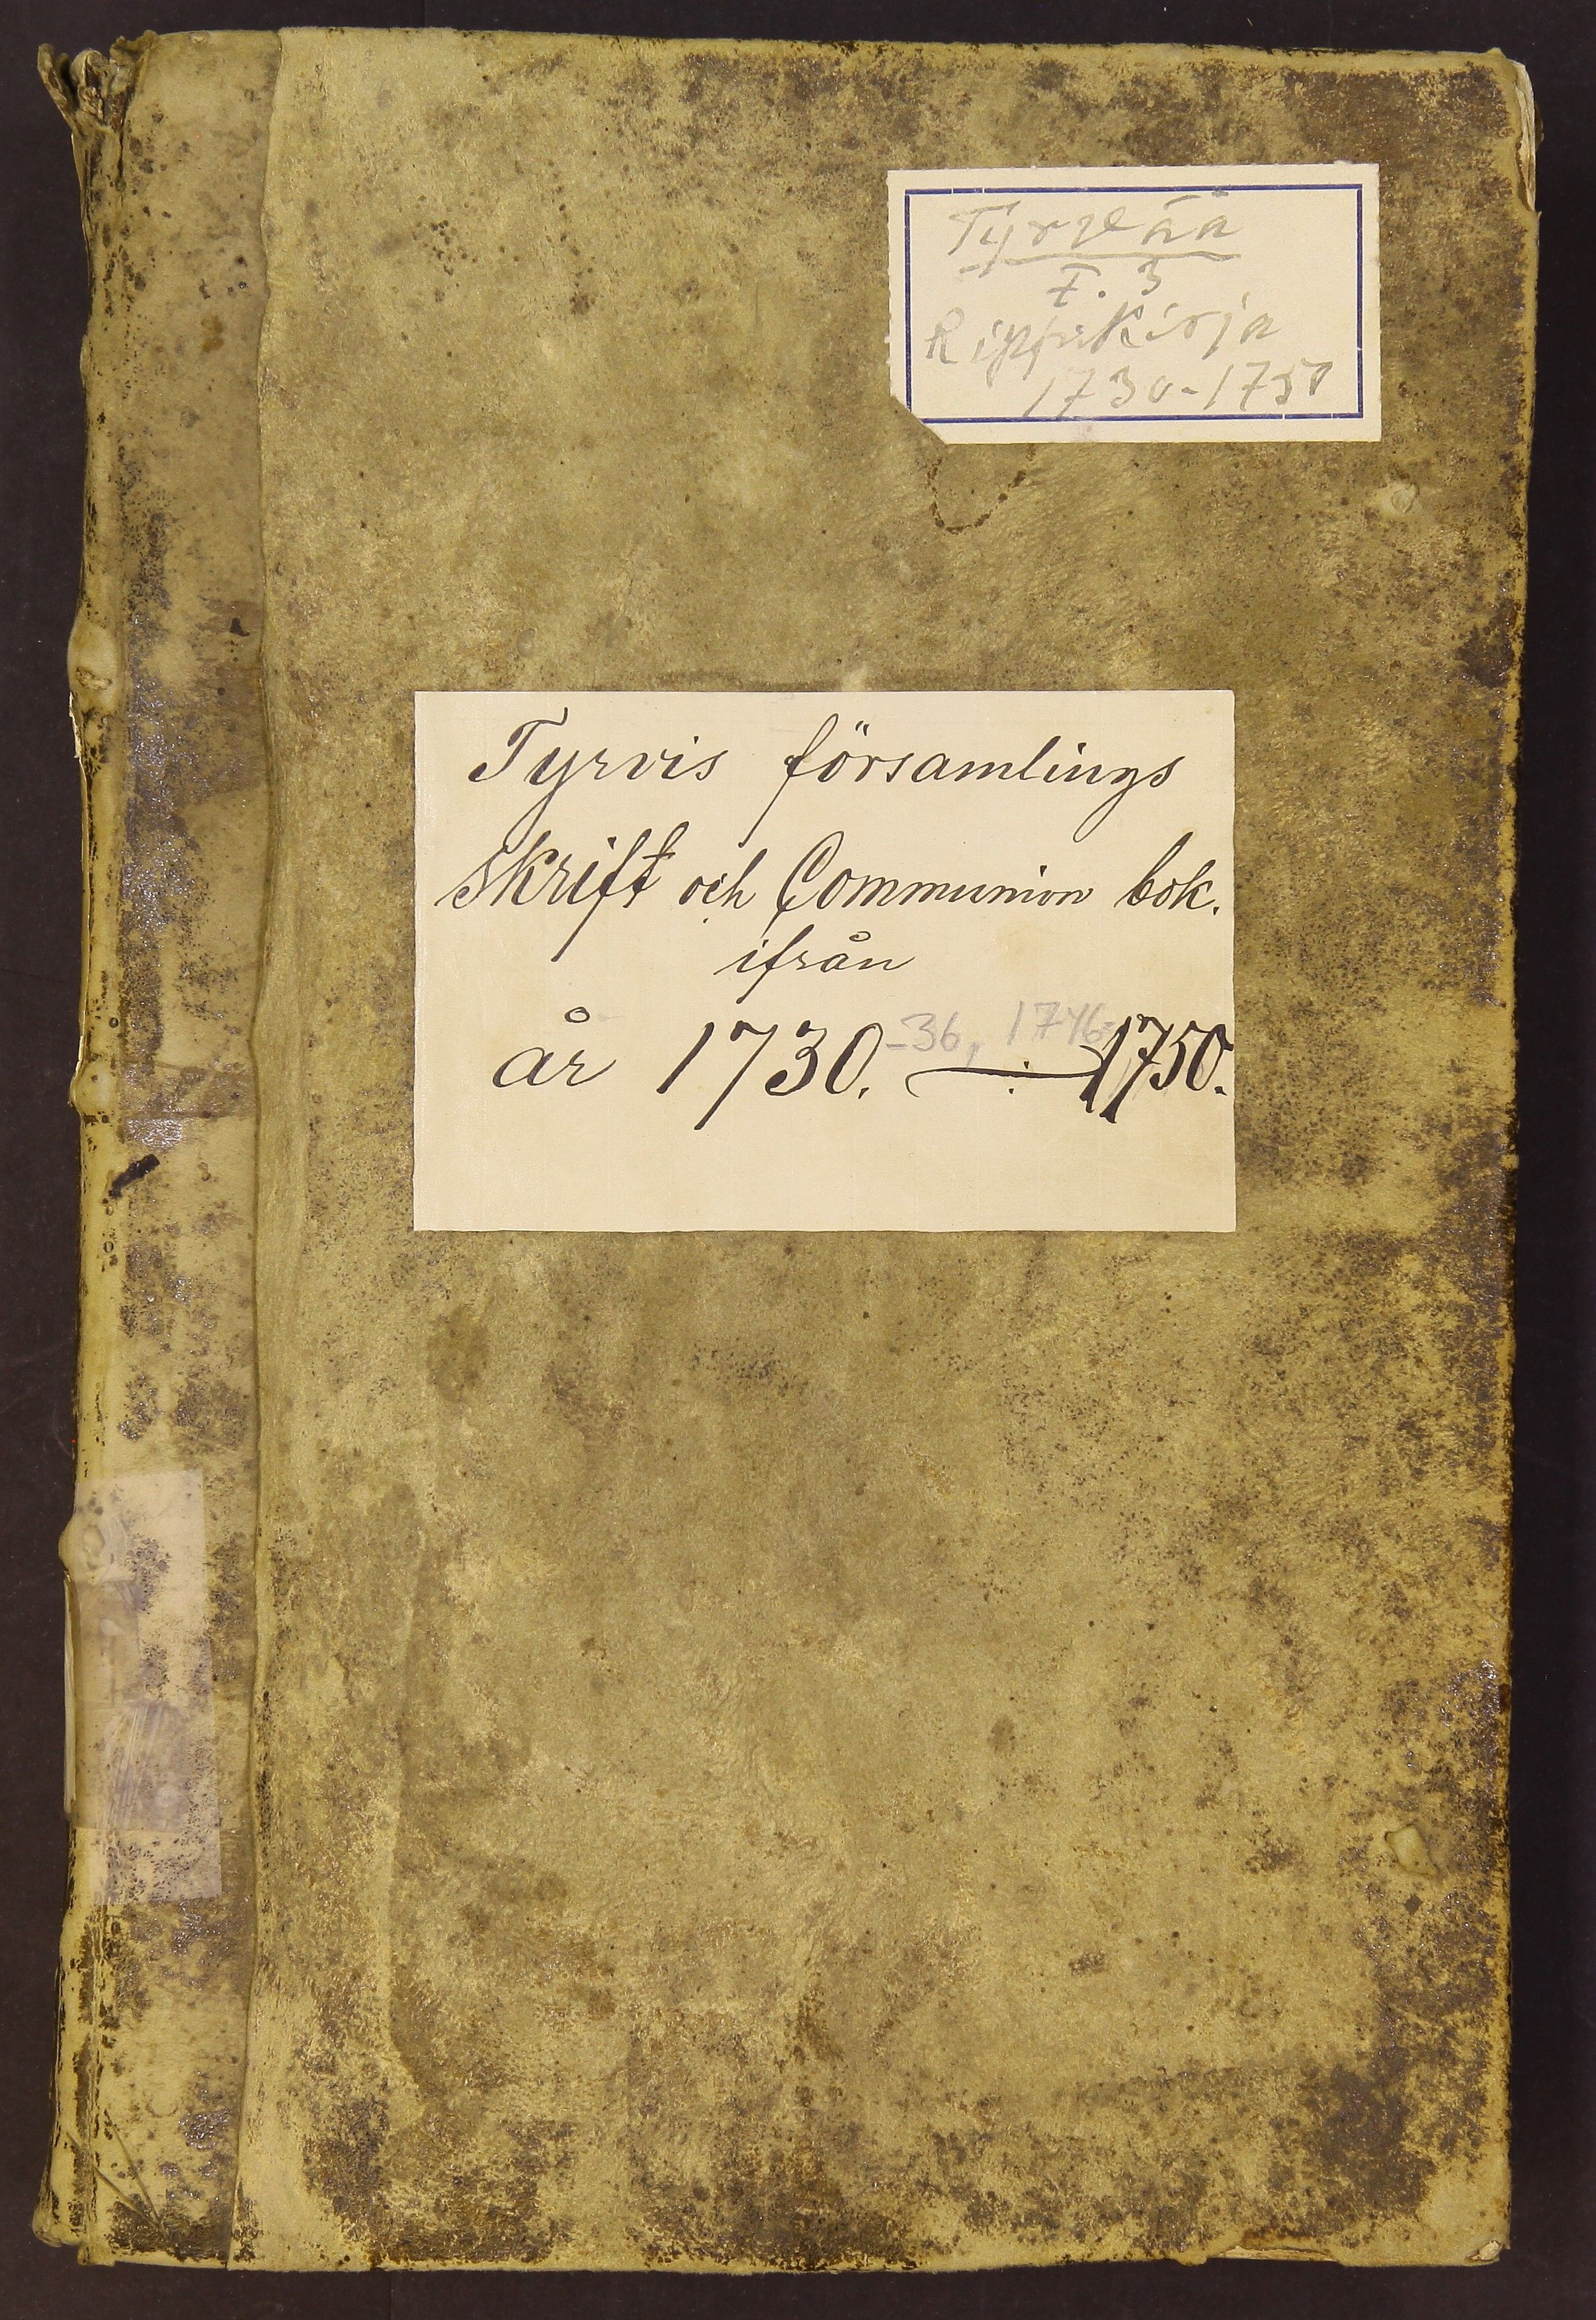 Tyrvää
I. 3
Rippikirja
1730-1750
Tyrvis församlings
skrift och Communion bok.
ifrån
år 1730.-36, 1746-1750.